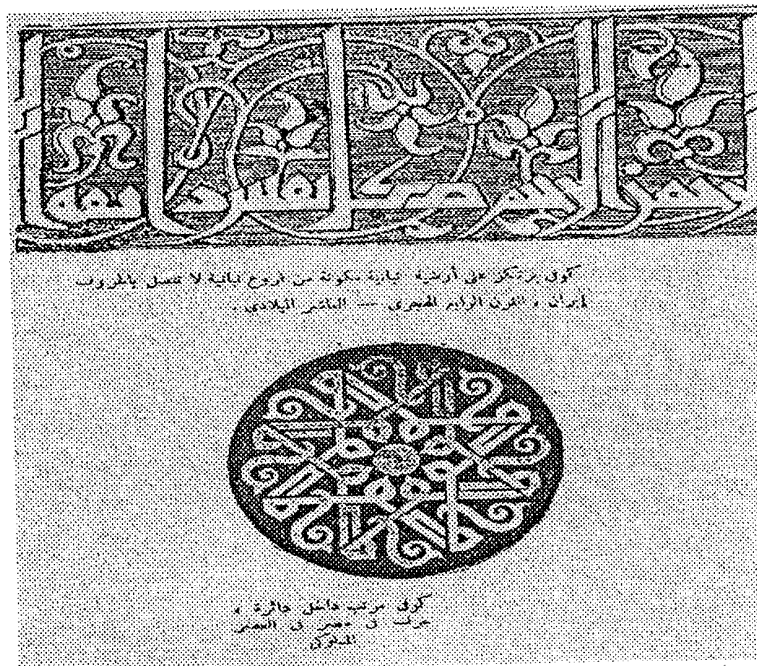 كوفى يرتكز على أرضية نباتية مكونة من فروع نباتية لا تتصل بالحروف
إيران ، القرن الرابع الهجرى — العاشر الميلادى .
كوفى مرتب داخل دائرة ،
عرف فى مصر فى العصر
المملوكى